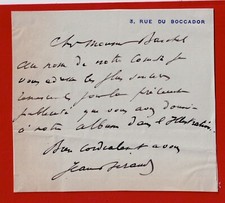 3, RUE DU BOCCADOR
Cher Monsieur Baschet
Au nom de notre Comité je
vous adresse les plus sincères
pour la précieuse
publicité que vous avez donnée
à notre album dans l'Illustration.
Bien cordialement à vous
Jean